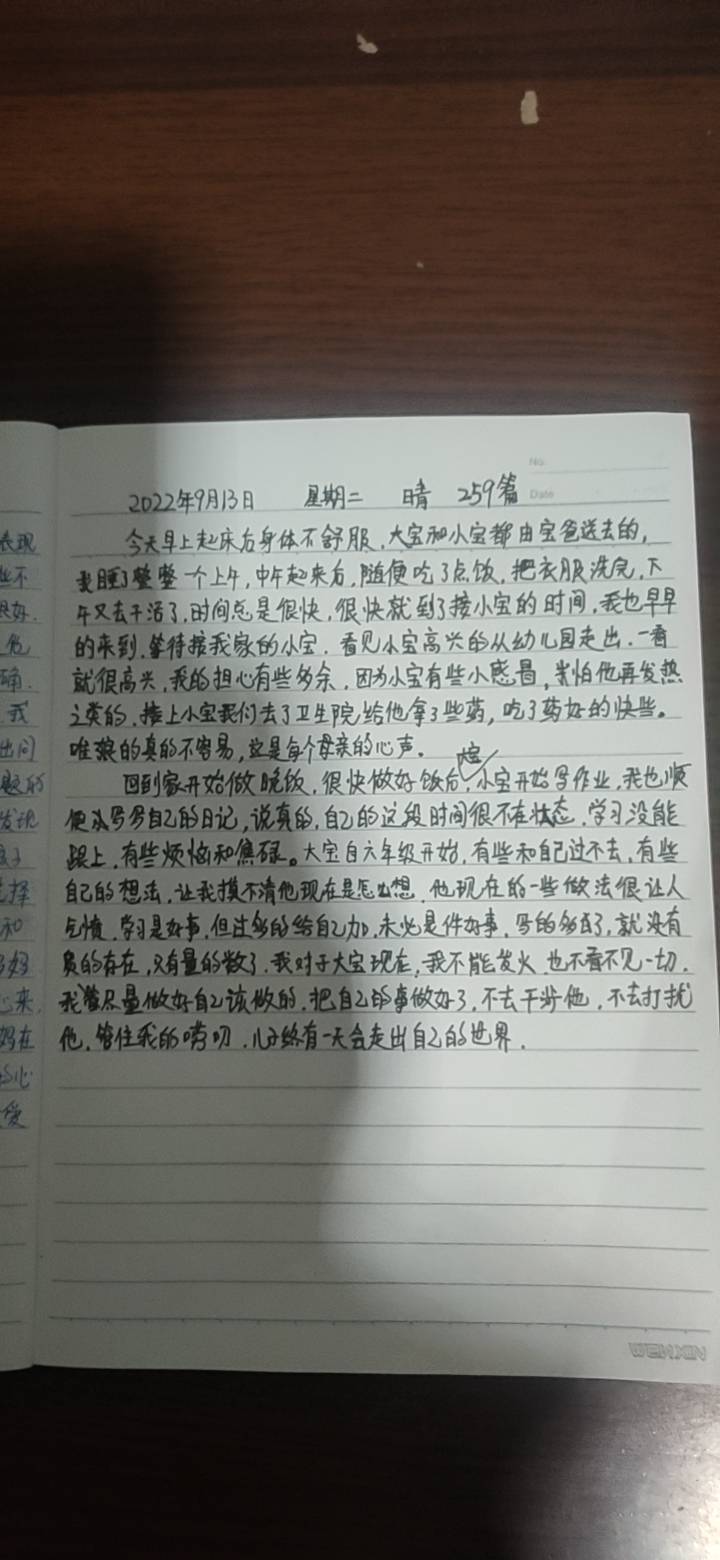 No.
Date
2022年9月13日 星期二 晴 259篇
今天早上起床后身体不舒服,大宝和小宝都由宝爸送去的,
我睡了整整一个上午,中午起来后,随便吃了点饭,把衣服洗完,下
午又去干活了,时间总是很快,很快就到了接小宝的时间,我也早早
的来到.等待接我家的小宝.看见小宝高兴的从幼儿园走出.一看
就很高兴,我的担心有些多余.因为小宝有些小感冒,害怕他再发热
之类的.接上小宝我们去了卫生院给他拿了些药,吃了药好的快些。
唯娘的真的不容易,这是每个母亲的心声.
回到家开始做晚饭,很快做好饭后,大宝小宝开始写作业,我也顺
便写写自己的日记,说真的,自己的这段时间很不在状态.学习没能
跟上,有些烦恼和焦碌。大宝自六年级开始,有些和自己过不去,有些
自己的想法,让我摸不清他现在是怎么想.他现在的一些做法很让人
气愤.学习是好事,但过多的给自己加,未必是件好事.写的多了,就没有
质的存在,只有量的数了.我对于大宝现在,我不能发火.也不看不见一切.
我尽量做好自己该做的.把自己的事做好了,不去干涉他,不去打扰
他.管住我的唠叨.儿子终有一天会走出自己的世界.
表现
些不
良好.
危
确.
我
出问
题的
发现
孩子
选择
和
多好
心来.
妈在
的心
爱